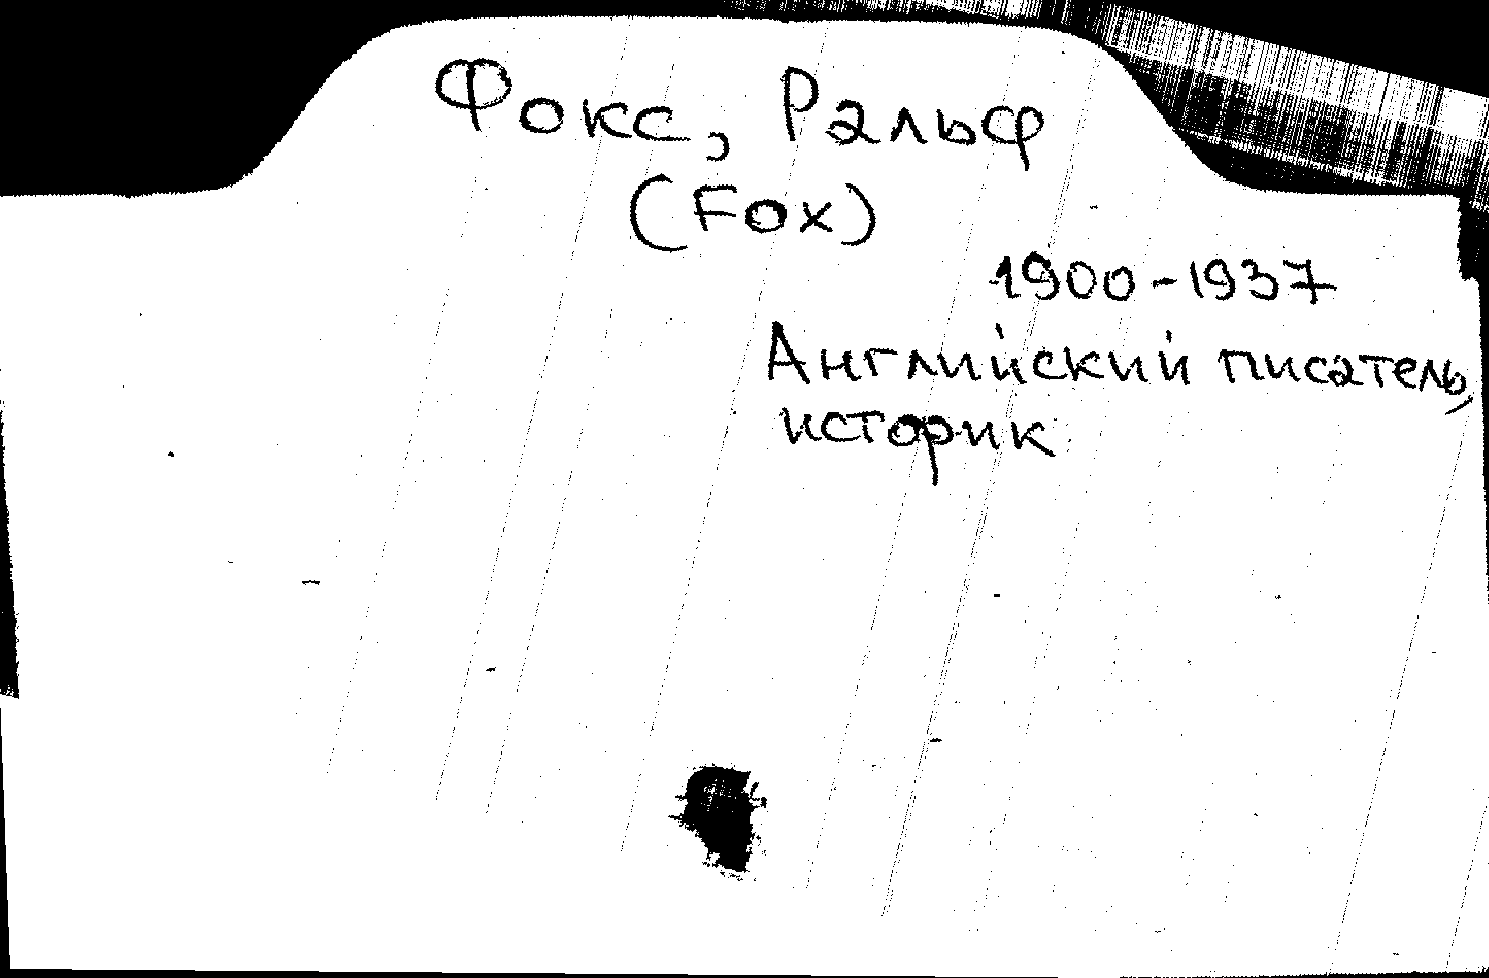 Фокс, Ральф
(Fox)
1900-1937
Английский писатель,
историк